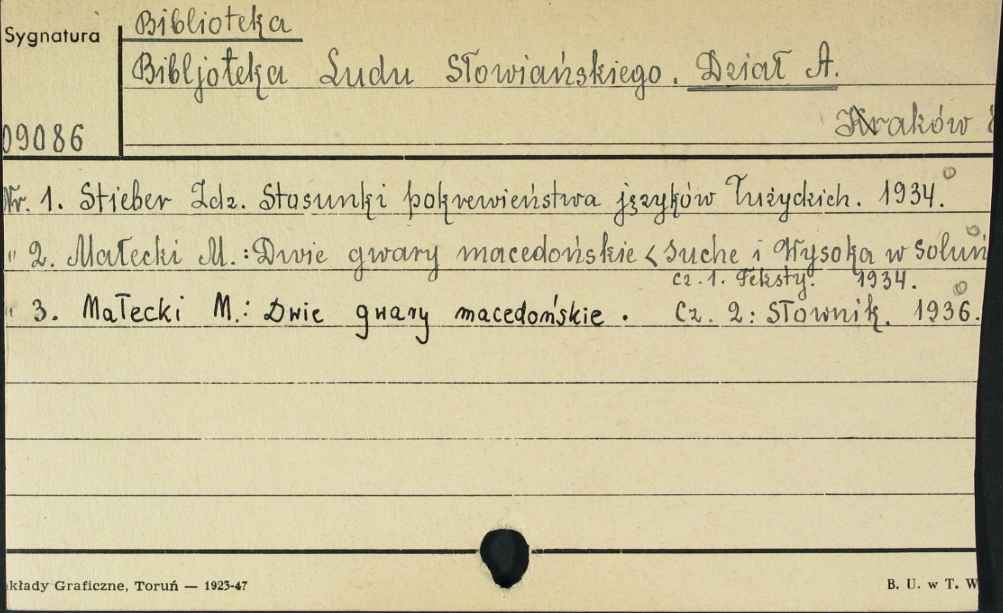 Sygnatura
Biblioteka
Bibljoteka Ludu Słowiańskiego. Dział A.
Kraków
09086
Nr. 1. Stieber Zdz. Stosunki pokrewieństwa języków łużyckich. 1934.
" 2. Małecki M.: Dwie gwary macedońskie < Suche i Wysoka w Soluń
cz. 1. Teksty. 1934.
" 3. Małecki M.: Dwie gwary macedońskie. Cz. 2: Słownik. 1936.
kłady Graficzne, Toruń — 1923-47
B. U. w T. W